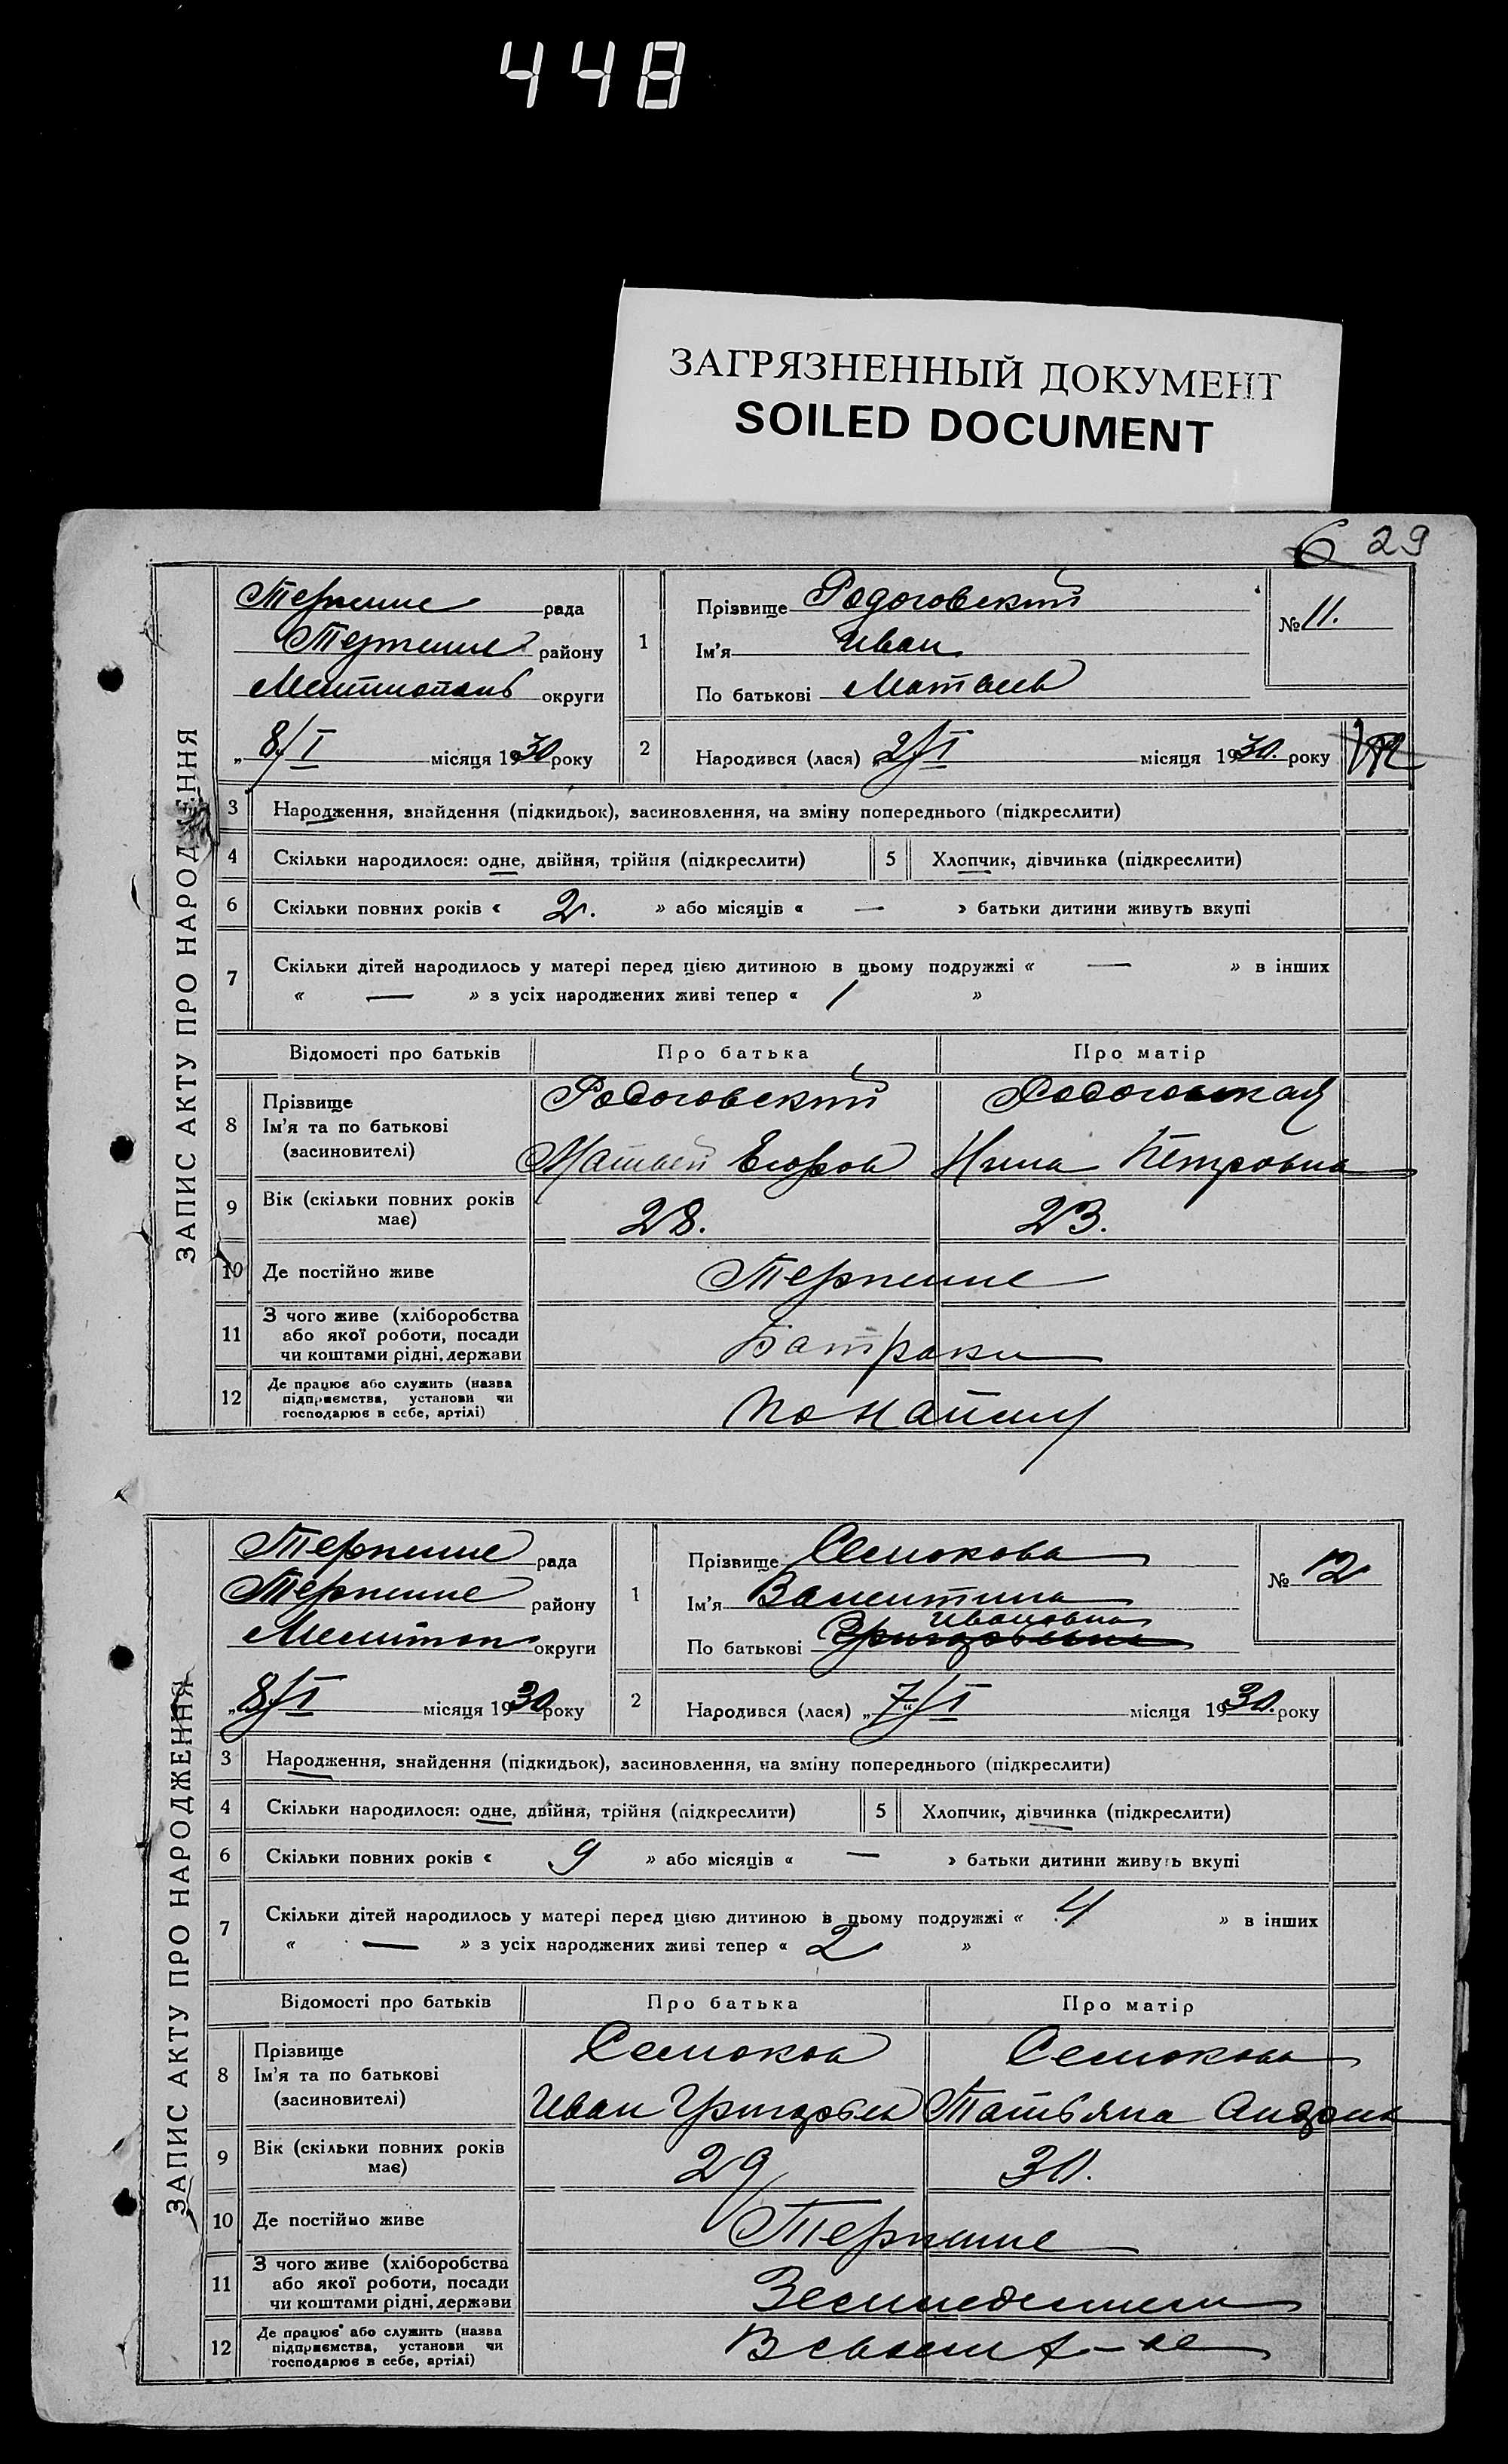 448
ЗАГРЯЗНЕННЫЙ ДОКУМЕНТ
SOILED DOCUMENT
6 29
ЗАПИС АКТУ ПРО НАРОДЖЕННЯ
Терпение рада
Терпение району
округи
„8/I місяця 1930 року
1
Прізвище Радоговский
Ім'я Иван
По батькові Матвеев
№ 11.
2 Народився (лася) „2/I місяця 1930. року
3 Народження, знайдення (підкидьок), засиновлення, на зміну попереднього (підкреслити)
4 Скільки народилося: одне, двійня, трійня (підкреслити) 5 Хлопчик, дівчинка (підкреслити)
6 Скільки повних років « 2. » або місяців « — » батьки дитини живуть вкупі
7 Скільки дітей народилось у матері перед цією дитиною в цьому подружжі « — » в інших
« — » з усіх народжених живі тепер « 1 »
Відомості про батьків Про батька Про матір
8 Прізвище
Ім'я та по батькові
(засиновителі)
Радоговский
Матвей Егоров
Радоговская
Нина Петровна
9 Вік (скільки повних років
має)
28. 23.
10 Де постійно живе Терпение
11 З чого живе (хліборобства
або якої роботи, посади
чи коштами рідні, держави
Батраки
12 Де працює або служить (назва
підприємства, установи чи
господарює в себе, артілі)
По найму
ЗАПИС АКТУ ПРО НАРОДЖЕННЯ
Терпение рада
Терпение району
Мелитоп округи
„8/I місяця 1930 року
1
Прізвище Семокова
Ім'я Валентина
По батькові Григорьевна Ивановна
№ 12
2 Народився (лася) „7"/I місяця 1930. року
3 Народження, знайдення (підкидьок), засиновлення, на зміну попереднього (підкреслити)
4 Скільки народилося: одне, двійня, трійня (підкреслити) 5 Хлопчик, дівчинка (підкреслити)
6 Скільки повних років « 9 » або місяців « — » батьки дитини живуть вкупі
7 Скільки дітей народилось у матері перед цією дитиною в цьому подружжі « 4 » в інших
« — » з усіх народжених живі тепер « 2 »
Відомості про батьків Про батька Про матір
8 Прізвище
Ім'я та по батькові
(засиновителі)
Семоков
Иван Григорьев
Семокова
Татьяна Андреев
9 Вік (скільки повних років
має)
29 30.
10 Де постійно живе Терпение
11 З чого живе (хліборобства
або якої роботи, посади
чи коштами рідні, держави
Земледелием
12 Де працює або служить (назва
підприємства, установи чи
господарює в себе, артілі)
В своем х-ве